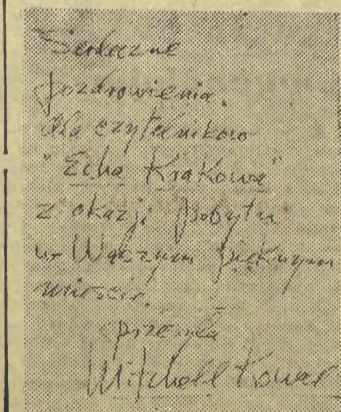 Serdeczne
pozdrowienia
dla czytelników
"Echa Krakowa"
z okazji pobytu
w Waszym pięknym
mieście.
przesyła
Mitchell Kowal